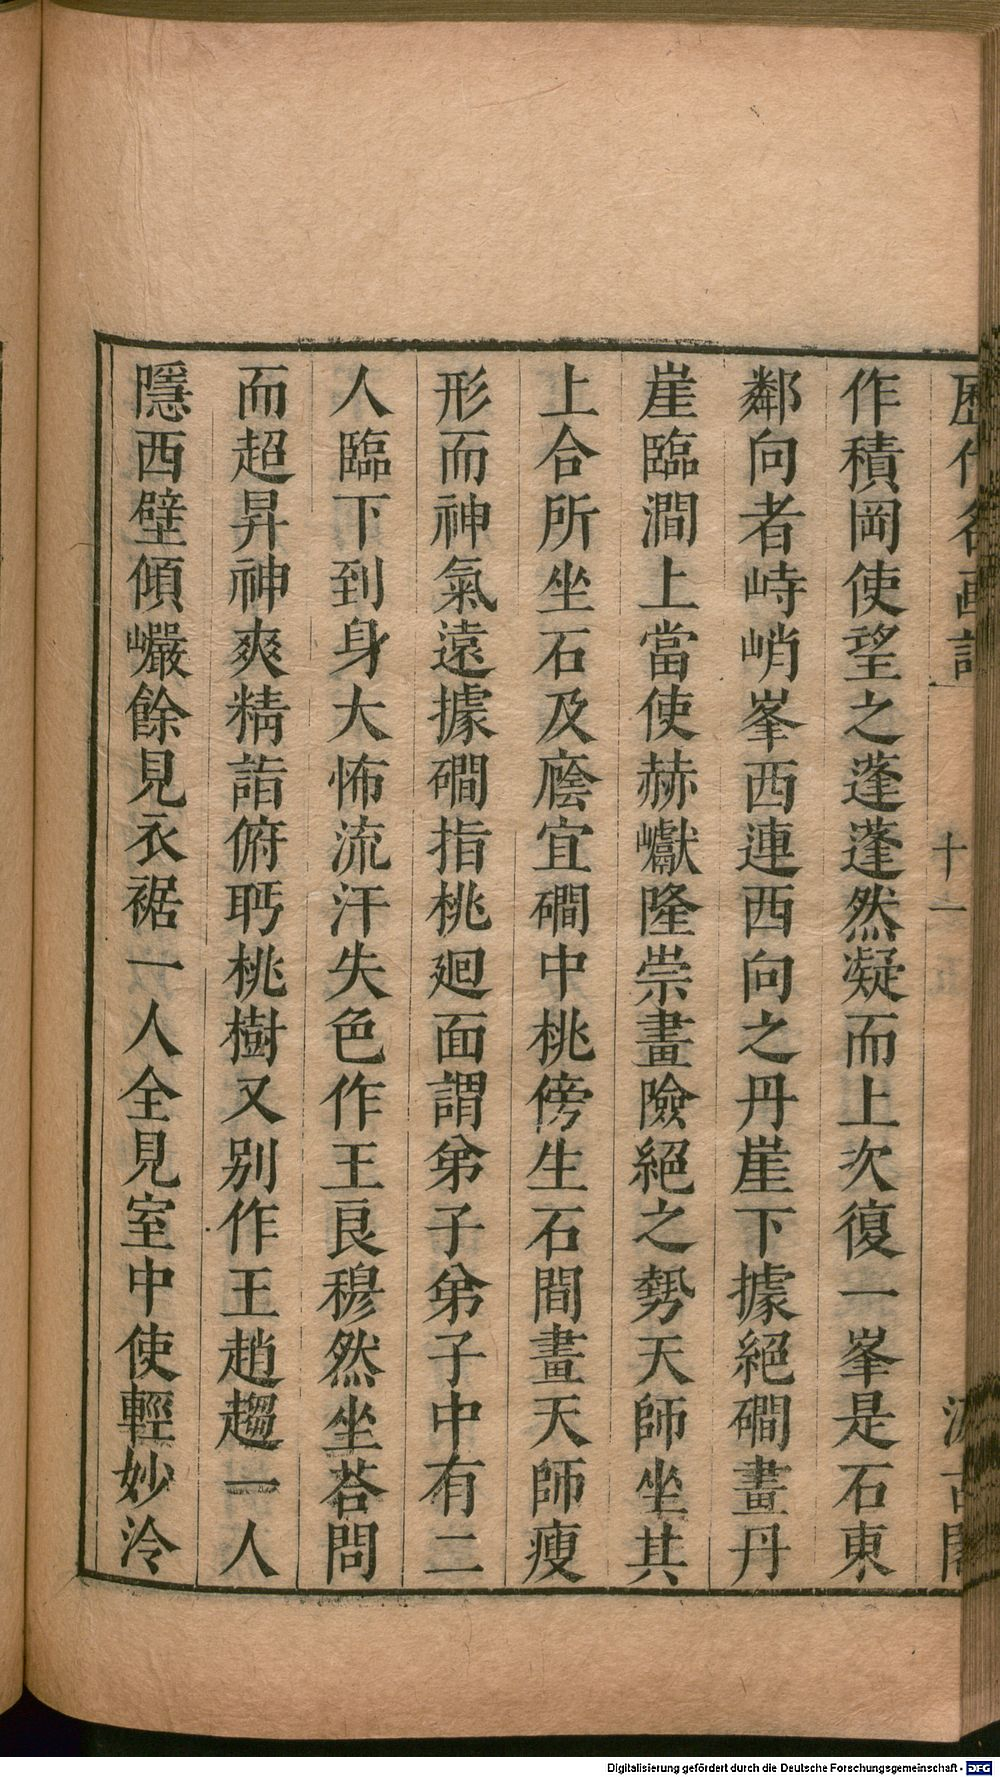 歷代名画記 十一 汲古閣
作積岡使望之蓬蓬然凝而上次復一峯是石東
鄰向者峙峭峯西連西向之丹崖下據絕磵畫丹
崖臨澗上當使赫巘隆崇畫險絕之勢天師坐其
上合所坐石及廕宜磵中桃傍生石間畫天師瘦
形而神氣遠據磵指桃廻面謂弟子弟子中有二
人臨下到身大怖流汗失色作王良穆然坐荅問
而超昇神爽精詣俯眄桃樹又別作王趙趨一人
隱西壁傾巖餘見衣裾一人全見室中使輕妙泠
Digitalisierung gefördert durch die Deutsche Forschungsgemeinschaft - DFG